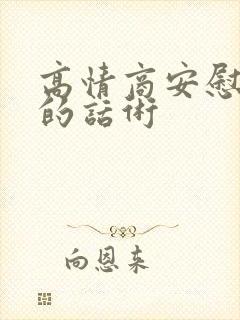 高情商安慰
的話術
向恩来